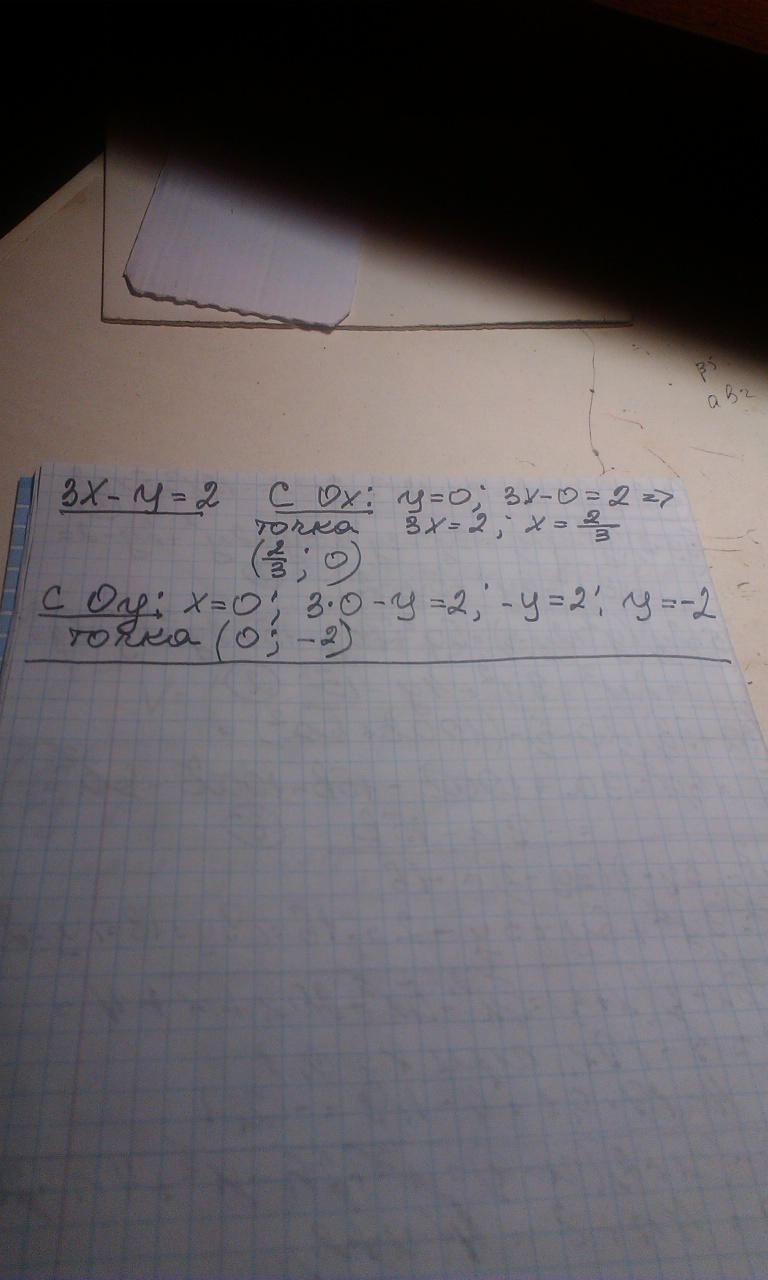 3x - y = 2   С Ox: y=0; 3x-0=2 =>
точка 3x=2; x=2/3
(2/3; 0)
С Oy: x=0; 3·0-y=2; -y=2; y=-2
точка (0; -2)